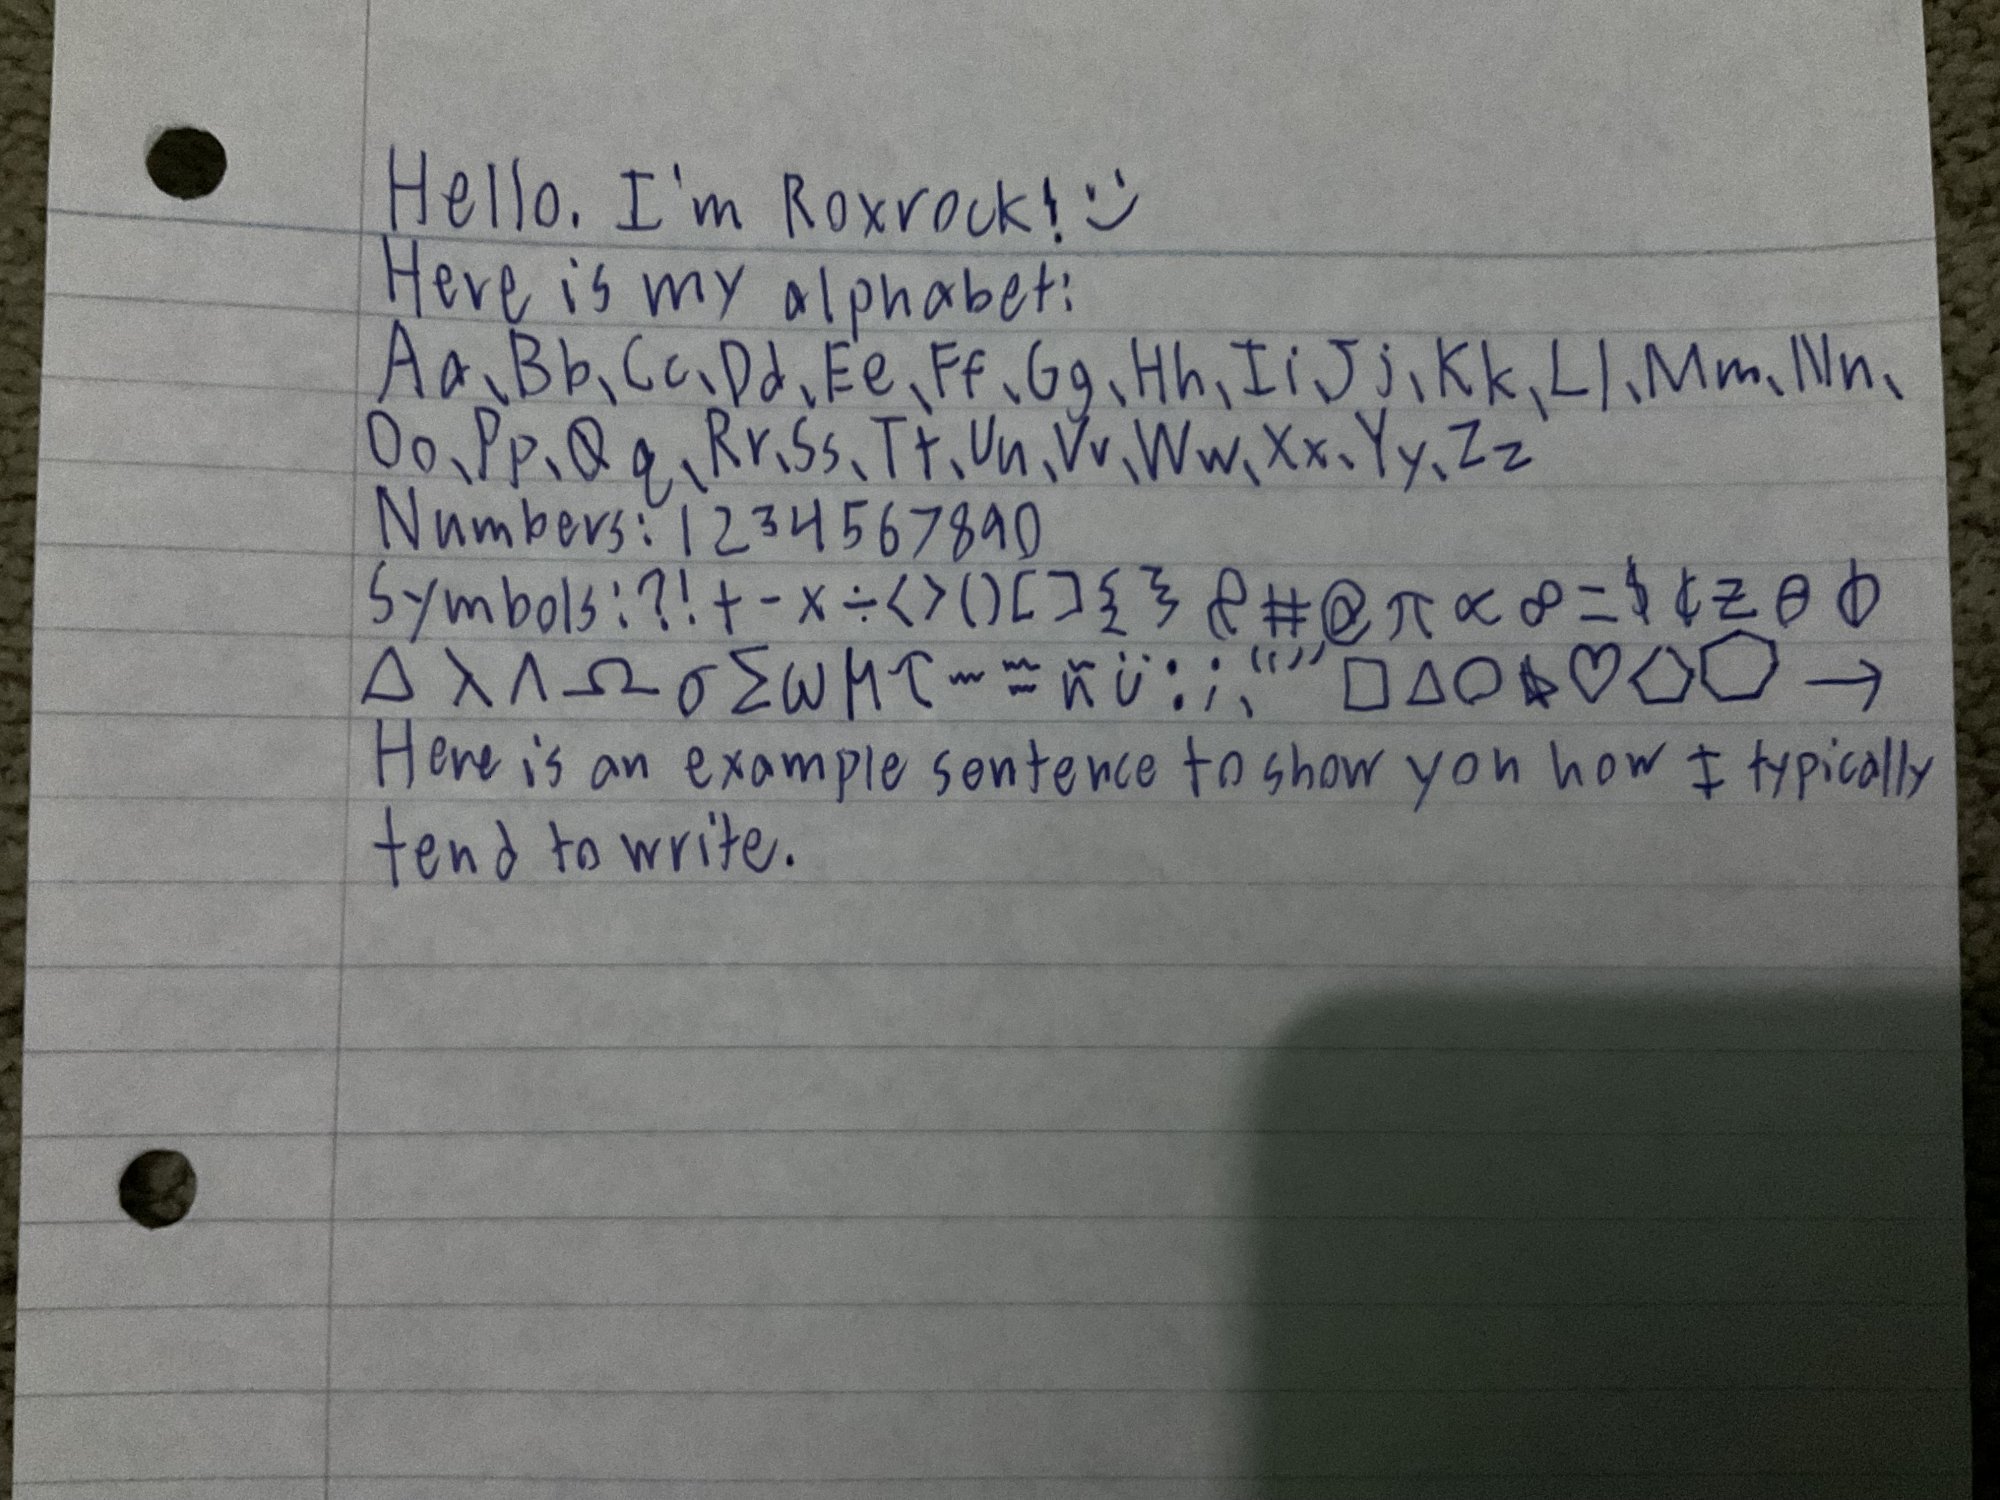 Hello. I'm Roxrock! :)
Here is my alphabet:
Aa, Bb, Cc, Dd, Ee, Ff, Gg, Hh, Ii, Jj, Kk, Ll, Mm, Nn,
Oo, Pp, Qq, Rr, Ss, Tt, Uu, Vv, Ww, Xx, Yy, Zz
Numbers: 1234567890
Symbols: ?! + - x ÷ < > ( ) [ ] { } & # @ π ∝ ∞ = $ ¢ z θ Φ
Δ λ Λ Ω σ Σ ω μ τ ~ ≈ ñ ü : ; , “ ” □ △ ○ ☆ ♡ ⬠ ⬡ →
Here is an example sentence to show you how I typically
tend to write.